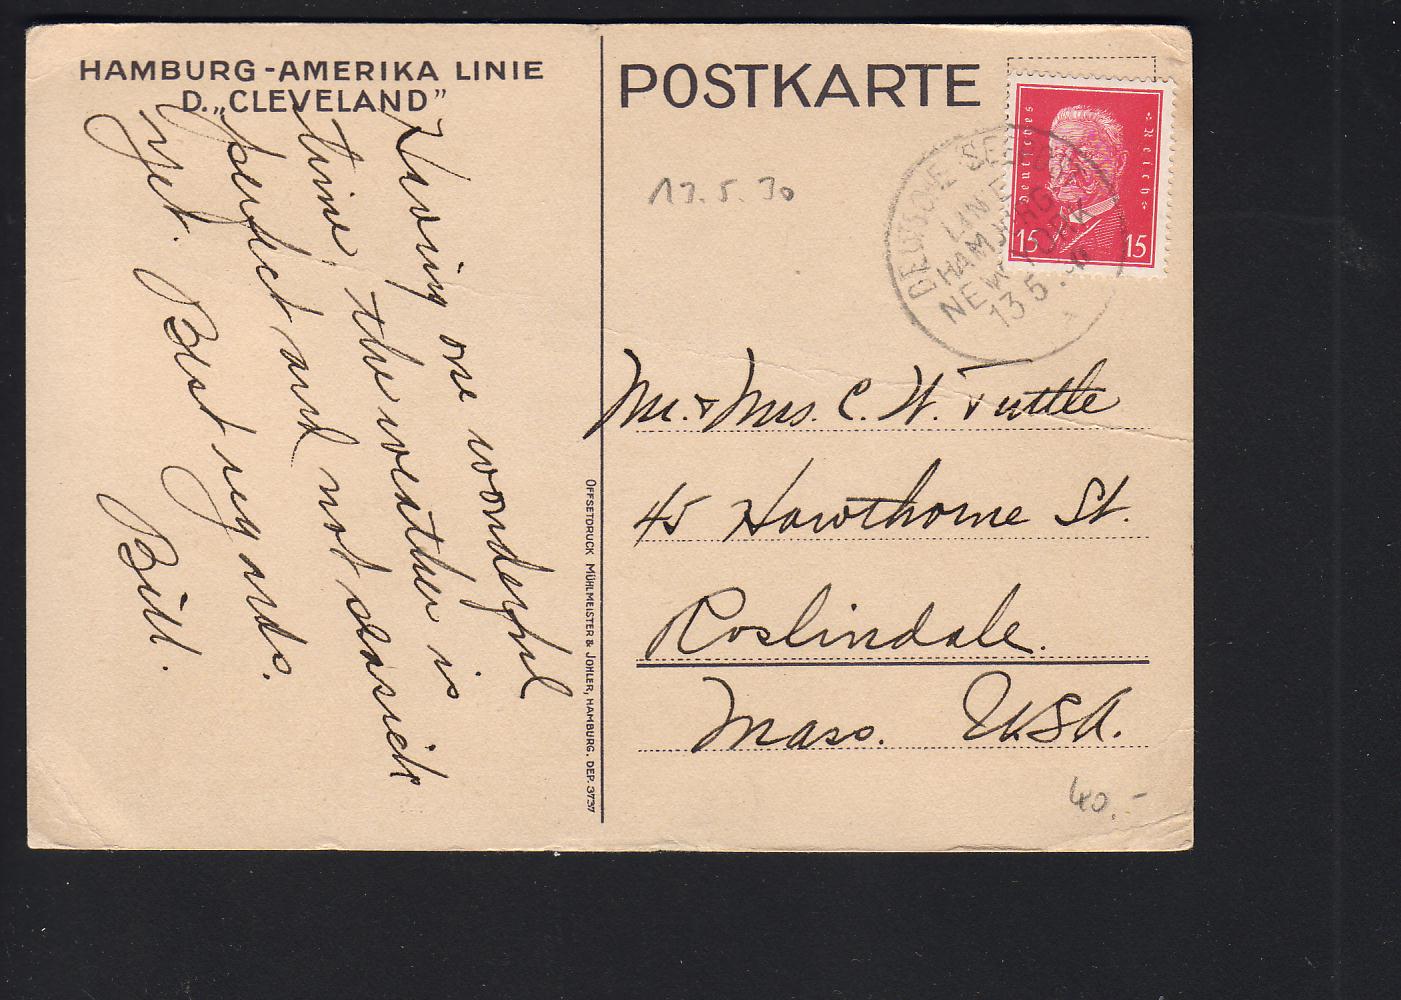 HAMBURG-AMERIKA LINIE
D. „CLEVELAND”
Having one wonderful
time the weather is
perfect and not seasick
yet. Best regards.
Bill.
OFFSETDRUCK MÜHLMEISTER & JOHLER, HAMBURG. DEP. 3737
POSTKARTE
13.5.30
DEUTSCHE
LINIE
HAMBURG
NEW YORK
13 5. 30
Deutsches Reich
15 15
Mr. & Mrs. C. W. Tuttle
45 Hawthorne St.
Roslindale.
Mass. USA.
40.-